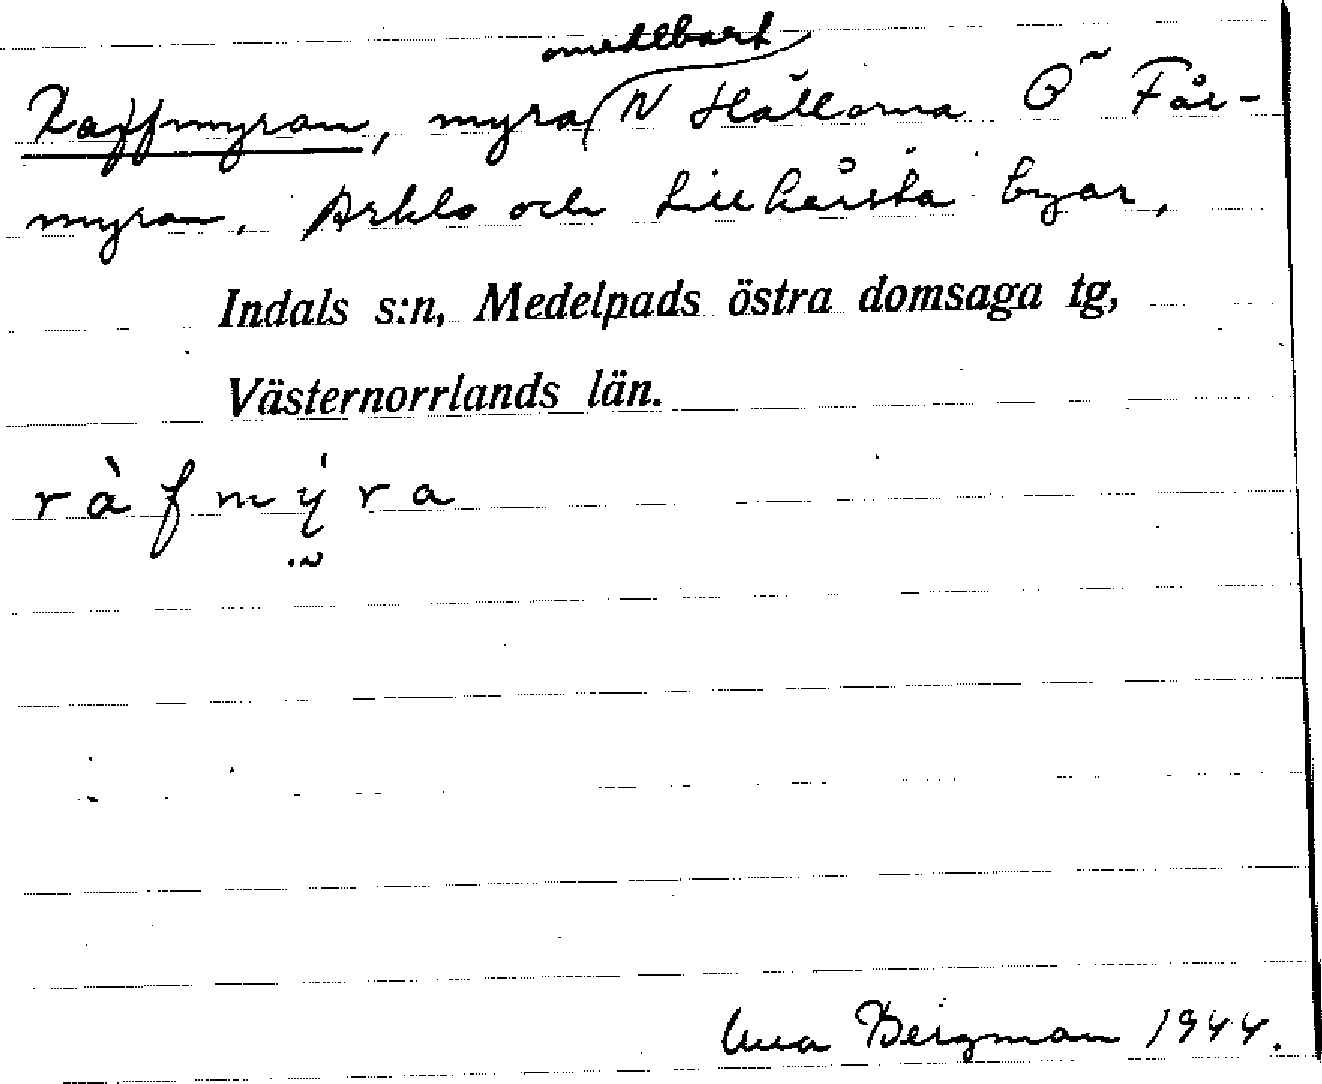 omedelbart
Raffmyran, myra N Hällorna Ö Får-
myran. Arklo och Lillhärsta byar,
Indals s:n, Medelpads östra domsaga tg,
Västernorrlands län.
ràfmýra
Bergman 1944.